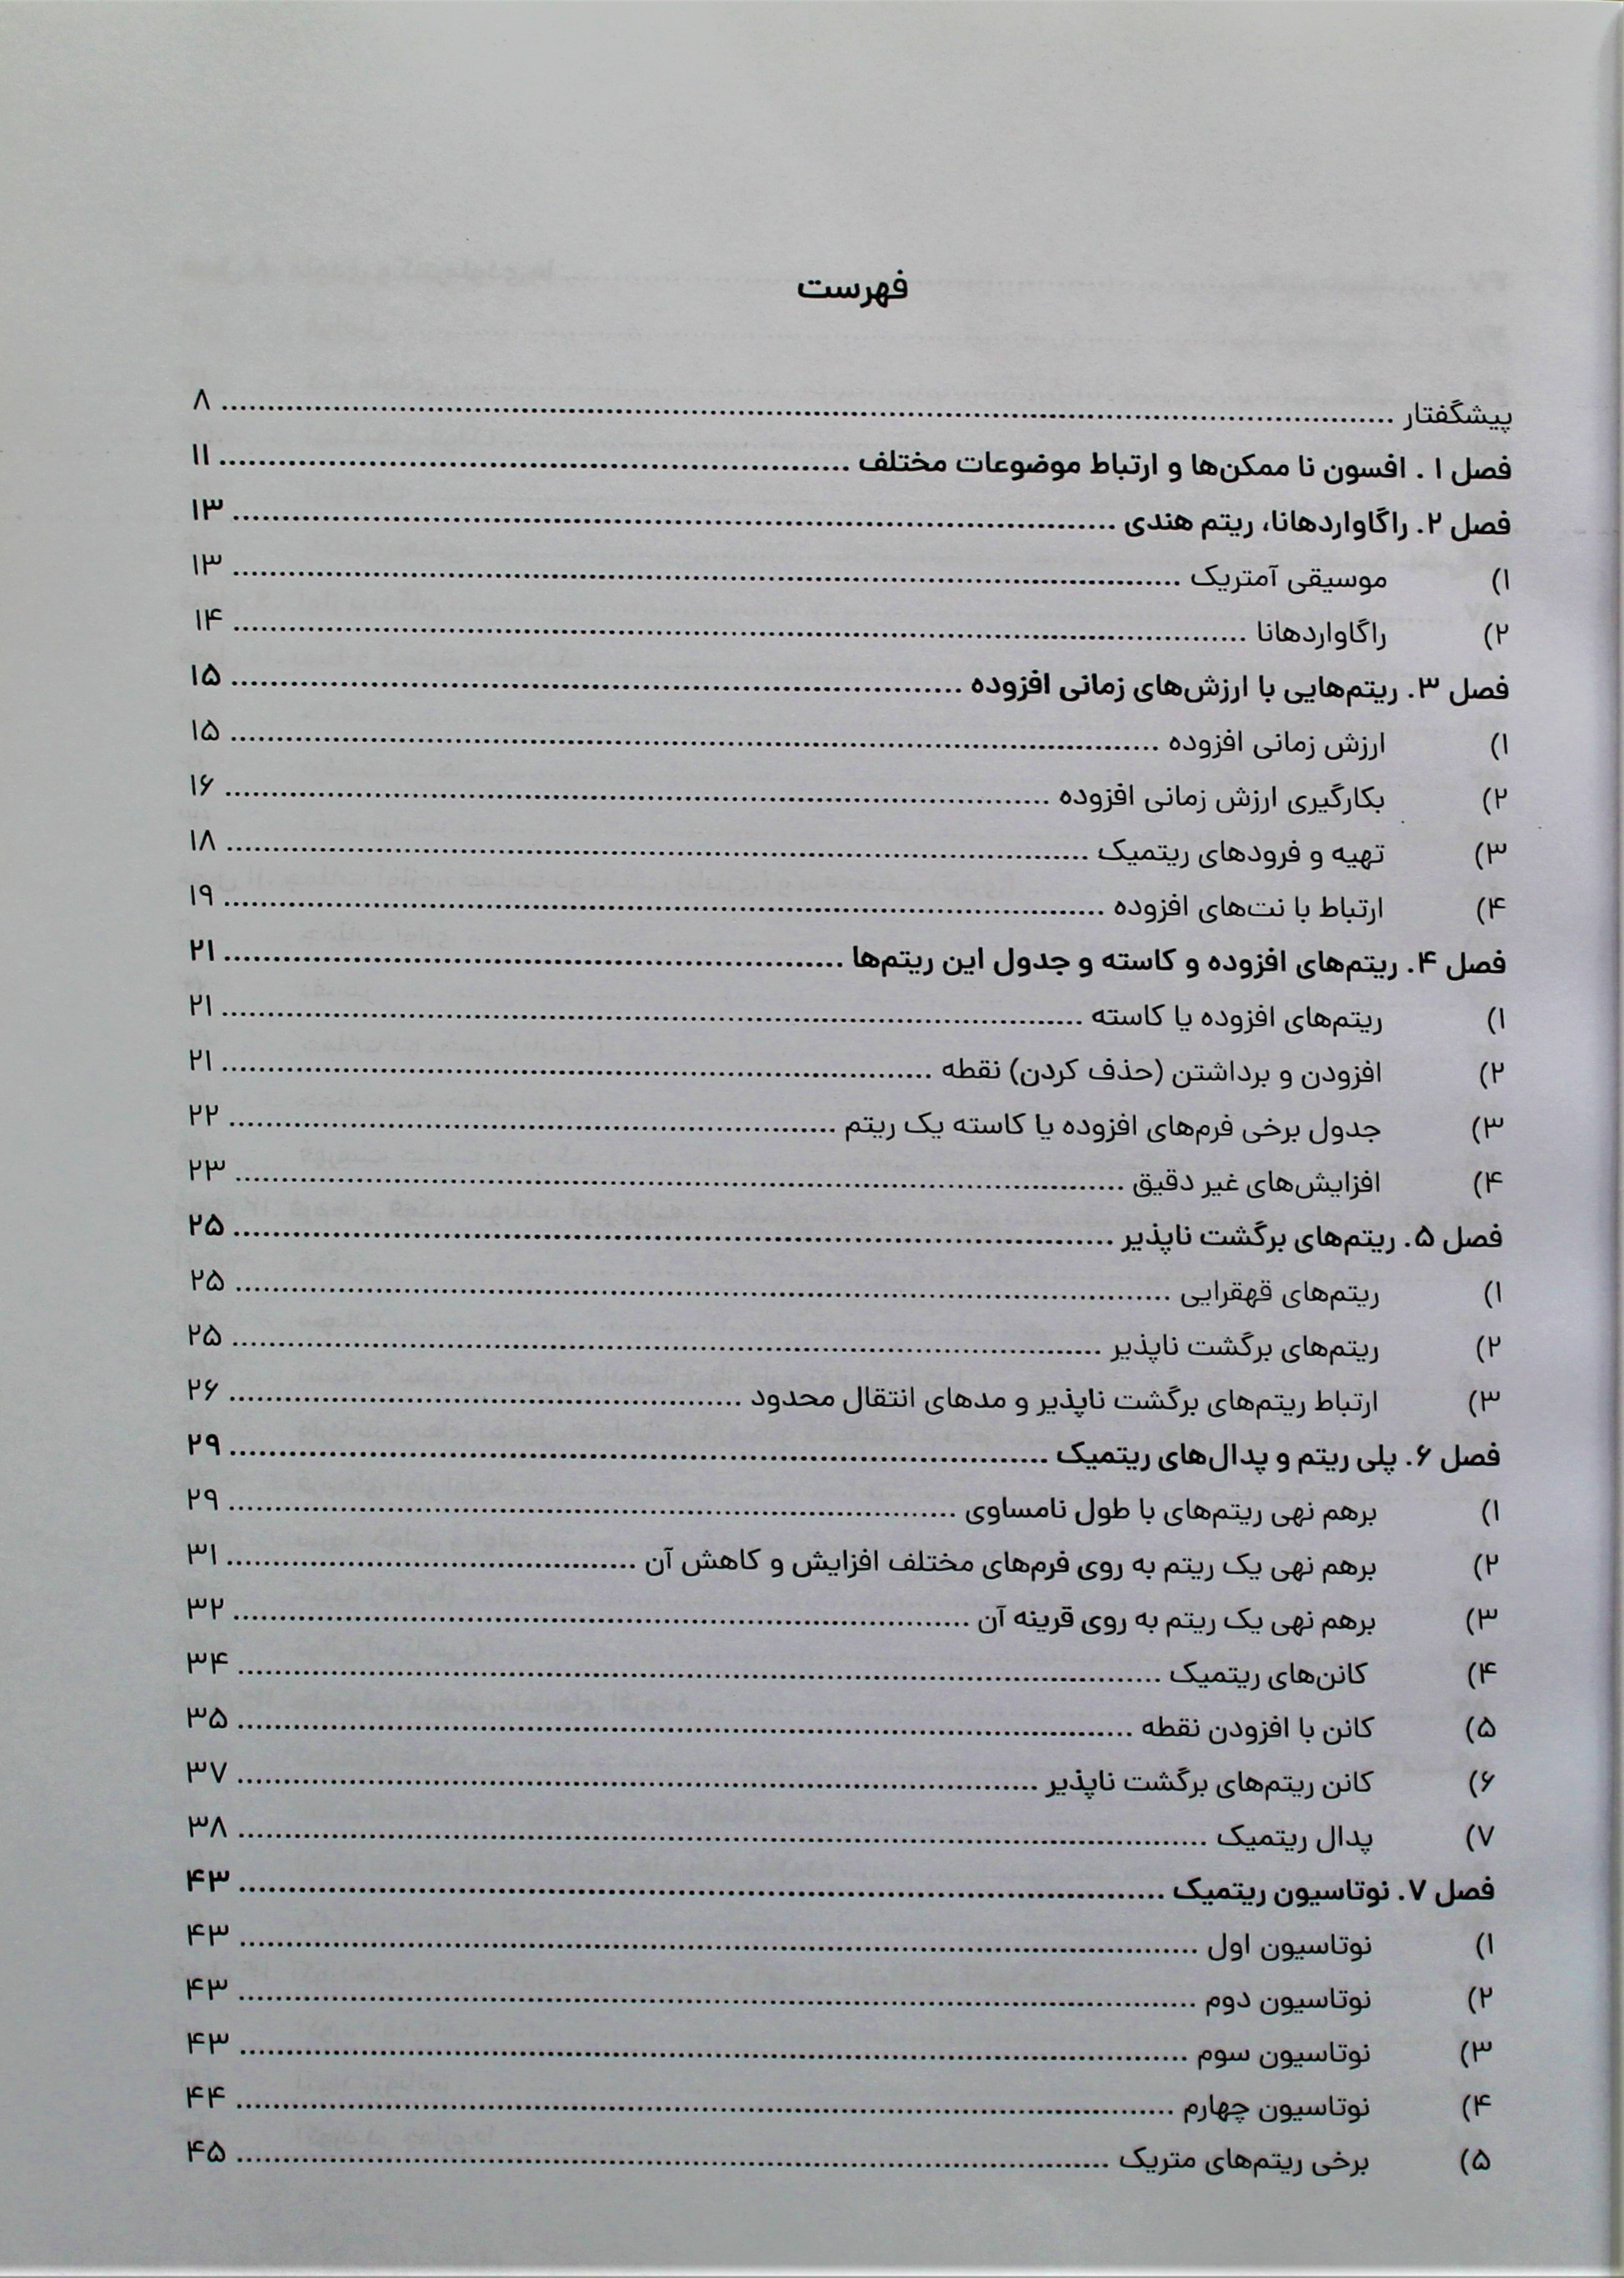 فهرست
پیشگفتار ........................................ ۸
فصل ۱ . افسون نا ممکن‌ها و ارتباط موضوعات مختلف ........................................ ۱۱
فصل ۲. راگاواردهانا، ریتم هندی ........................................ ۱۳
۱) موسیقی آمتریک ........................................ ۱۳
۲) راگاواردهانا ........................................ ۱۴
فصل ۳. ریتم‌هایی با ارزش‌های زمانی افزوده ........................................ ۱۵
۱) ارزش زمانی افزوده ........................................ ۱۵
۲) بکارگیری ارزش زمانی افزوده ........................................ ۱۶
۳) تهیه و فرودهای ریتمیک ........................................ ۱۸
۴) ارتباط با نت‌های افزوده ........................................ ۱۹
فصل ۴. ریتم‌های افزوده و کاسته و جدول این ریتم‌ها ........................................ ۲۱
۱) ریتم‌های افزوده یا کاسته ........................................ ۲۱
۲) افزودن و برداشتن (حذف کردن) نقطه ........................................ ۲۱
۳) جدول برخی فرم‌های افزوده یا کاسته یک ریتم ........................................ ۲۲
۴) افزایش‌های غیر دقیق ........................................ ۲۳
فصل ۵. ریتم‌های برگشت ناپذیر ........................................ ۲۵
۱) ریتم‌های قهقرایی ........................................ ۲۵
۲) ریتم‌های برگشت ناپذیر ........................................ ۲۵
۳) ارتباط ریتم‌های برگشت ناپذیر و مدهای انتقال محدود ........................................ ۲۶
فصل ۶. پلی ریتم و پدال‌های ریتمیک ........................................ ۲۹
۱) برهم نهی ریتم‌های با طول نامساوی ........................................ ۲۹
۲) برهم نهی یک ریتم به روی فرم‌های مختلف افزایش و کاهش آن ........................................ ۳۱
۳) برهم نهی یک ریتم به روی قرینه آن ........................................ ۳۲
۴) کانن‌های ریتمیک ........................................ ۳۴
۵) کانن با افزودن نقطه ........................................ ۳۵
۶) کانن ریتم‌های برگشت ناپذیر ........................................ ۳۷
۷) پدال ریتمیک ........................................ ۳۸
فصل ۷. نوتاسیون ریتمیک ........................................ ۴۳
۱) نوتاسیون اول ........................................ ۴۳
۲) نوتاسیون دوم ........................................ ۴۳
۳) نوتاسیون سوم ........................................ ۴۳
۴) نوتاسیون چهارم ........................................ ۴۴
۵) برخی ریتم‌های متریک ........................................ ۴۵